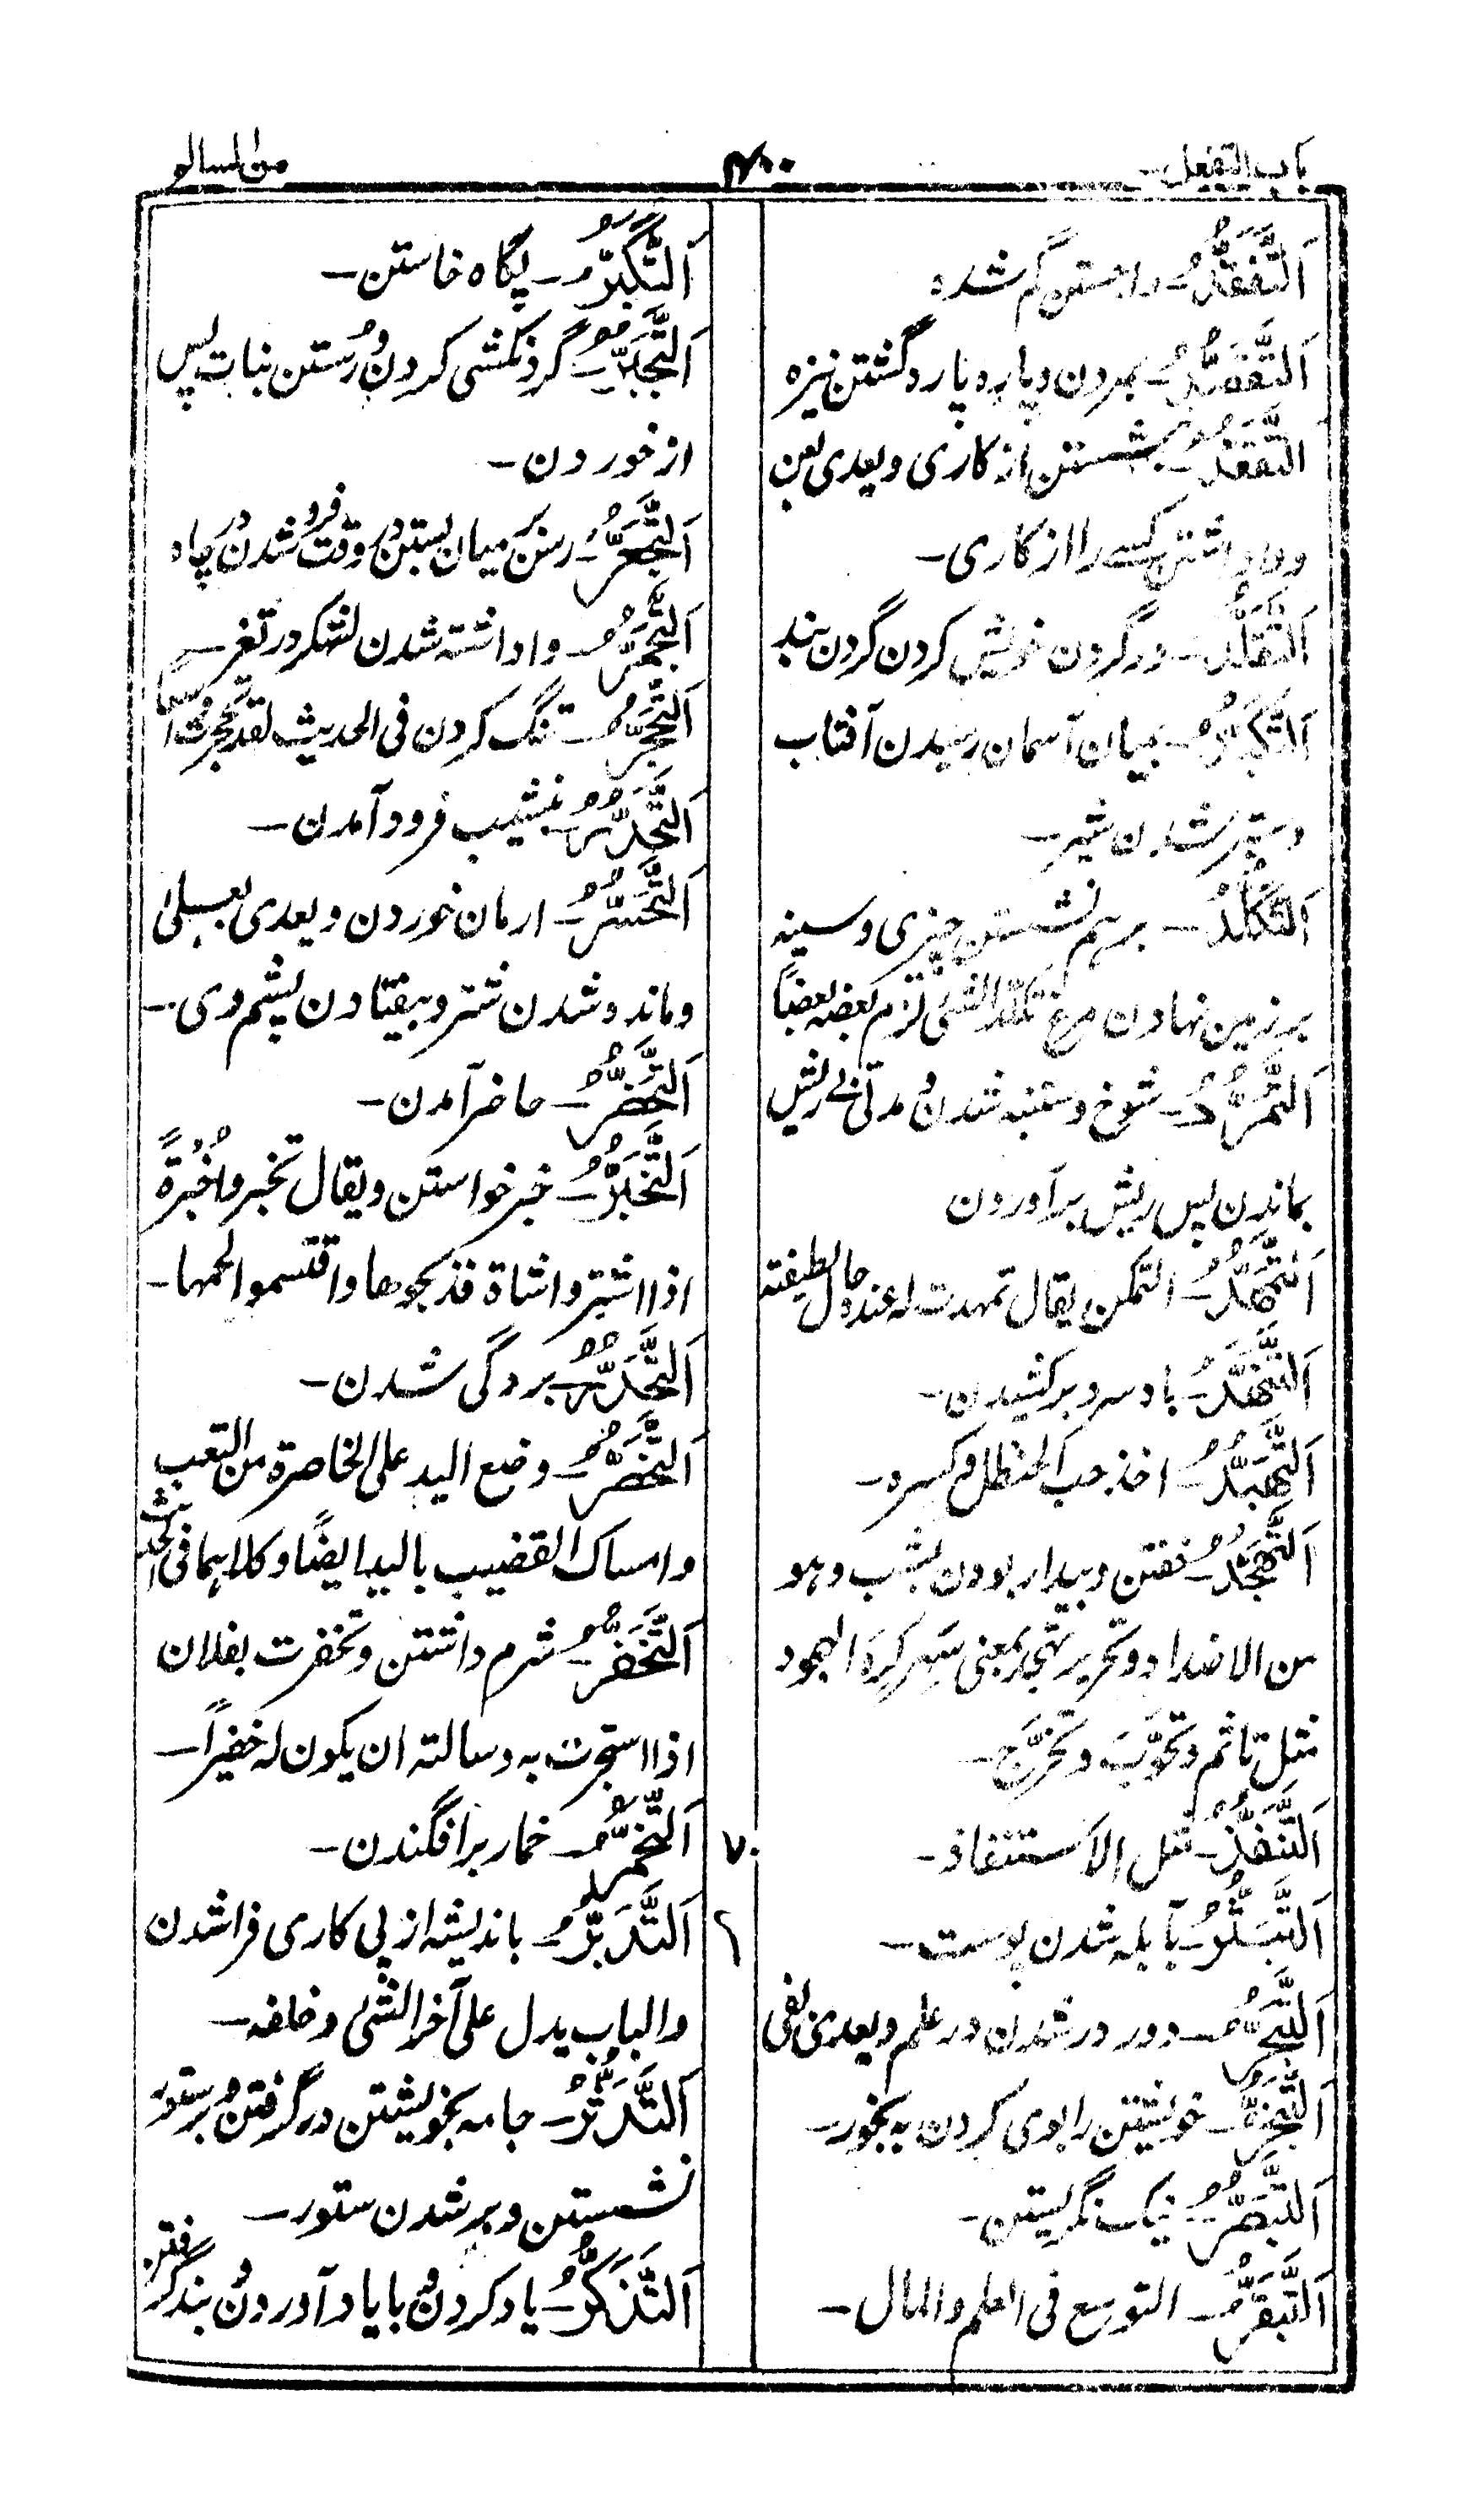 باب التفعل
۴۰۰
من السالم
اَلتَّفَقُّدُ ـ واجستن گم شده
اَلتَّقَصُّدُ ـ بمردن و پاره پاره گشتن نیزه
اَلتَّقَعُّدُ ـ بنشستن از کاری و یعدی بعن
و واداشتن کسے را از کاری ـ
اَلتَّقَلُّدُ ـ در گردن خویش کردن گردن بند
اَلتَّكَبُّدُ ـ بمیان آسمان رسیدن آفتاب
و ستبر شدن شیر ـ
اَلتَّكَلُّدُ ـ برہم نشستن چیزی و سینه
بر زمین نهادن مرغ تکلد الشئ لزم بعضه بعضاً
اَلتَّمَرُّدُ ـ شوخ و ستنبه شدن و مدتی بے ریش
بماندن پس ریش برآوردن
اَلتَّمَهُّدُ ـ التمکن یقال تمهدت له عنده حال لطیفة
اَلتَّنَهُّدُ ـ باد سرد برکشیدن ـ
اَلتَّهَبُّدُ ـ اخذ حب الحنظل وکسره ـ
اَلتَّهَجُّدُ ـ خفتن و بیدار بودن بشب وہو
من الاضداد و تحریر تہجد بمعنی سَہِر کَرِهَ الہجود
مثل تاثم و تحوَّبَ و تحرَّج ـ
اَلتَّنَفُّذُ ـ مثل الاستنفاذ ـ
اَلتَّبَثُّرُ ـ آبله شدن پوست ـ
اَلتَّبَحُّرُ ـ دور در شدن در علم و یعدی بفی
اَلتَّبَخُّرُ ـ خویشتن را بوی کردن به بخور ـ
اَلتَّبَصُّرُ ـ نیک نگریستن ـ
اَلتَّبَقُّرُ ـ التوسع فی العلم والمال ـ
اَلتَّبَكُّرُ ـ پگاه خاستن ـ
اَلتَّجَبُّرُ ـ گردنکشی کردن و رُستن نبات پس
از خوردن ـ
اَلتَّجَعُّرُ ـ رسن بر میان بستن در وقت فرو شدن در چاه
اَلتَّجَمُّرُ ـ واداشته شدن لشکر در ثغر ـ
اَلتَّحَجُّرُ ـ تنگ کردن فی الحدیث لقد تحجرت واسعا
اَلتَّحَدُّرُ ـ بنشیب فرود آمدن ـ
اَلتَّحَسُّرُ ـ ارمان خوردن و یعدی بعلی
و مانده شدن شتر و بیفتادن پشم وی ـ
اَلتَّحَضُّرُ ـ حاضر آمدن ـ
اَلتَّخَبُّرُ ـ خبر خواستن و یقال تخبروا خُبْرَةً
اذا اشتروا شاة فذبحوها واقتسموا لحمها ـ
اَلتَّخَدُّرُ ـ بردگی شدن ـ
اَلتَّخَصُّرُ ـ وضع الید علی الخاصرة من التعب
وامساک القضیب بالید ایضًا وکلاہما فی الحدیث
اَلتَّخَفُّرُ ـ شرم داشتن و تخفرت بفلان
اذا استجرت به و سالته ان یکون له خفیراً ـ
اَلتَّخَمُّرُ ـ خمار برافگندن ـ
۷۰
اَلتَّدَبُّرُ ـ باندیشه از پی کاری فراشدن
۲
والباب یدل علی آخر الشئ و خلفه ـ
اَلتَّدَثُّرُ ـ جامه بخویشتن درگرفتن و بر ستور
نشستن و بر شدن ستور ـ
اَلتَّذَكُّرُ ـ یاد کردن و با یاد آوردن و پند گرفتن